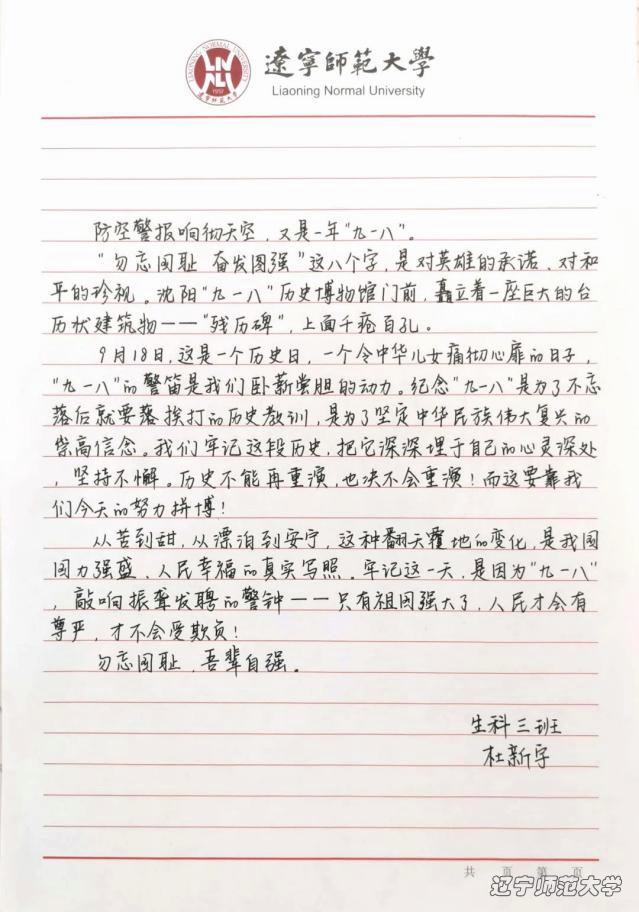 LIAONING NORMAL UNIVERSITY
LNNU
1951
辽宁师范大学
遼寧師範大學
Liaoning Normal University
防空警报响彻天空，又是一年"九一八"。
"勿忘国耻 奋发图强"这八个字，是对英雄的承诺、对和
平的珍视。沈阳"九一八"历史博物馆门前，矗立着一座巨大的台
历状建筑物——"残历碑"，上面千疮百孔。
9月18日，这是一个历史日，一个令中华儿女痛彻心扉的日子，
"九一八"的警笛是我们卧薪尝胆的动力。纪念"九一八"是为了不忘
落后就要落挨打的历史教训，是为了坚定中华民族伟大复兴的
崇高信念。我们牢记这段历史，把它深深埋于自己的心灵深处
，坚持不懈。历史不能再重演，也决不会重演！而这要靠我
们今天的努力拼博！
从苦到甜，从漂泊到安宁，这种翻天覆地的变化，是我国
国力强盛、人民幸福的真实写照。牢记这一天，是因为"九一八"
，敲响振聋发聩的警钟——只有祖国强大了，人民才会有
尊严，才不会受欺负！
勿忘国耻，吾辈自强。
生科三班
杜新宇
共 页 第 页
辽宁师范大学